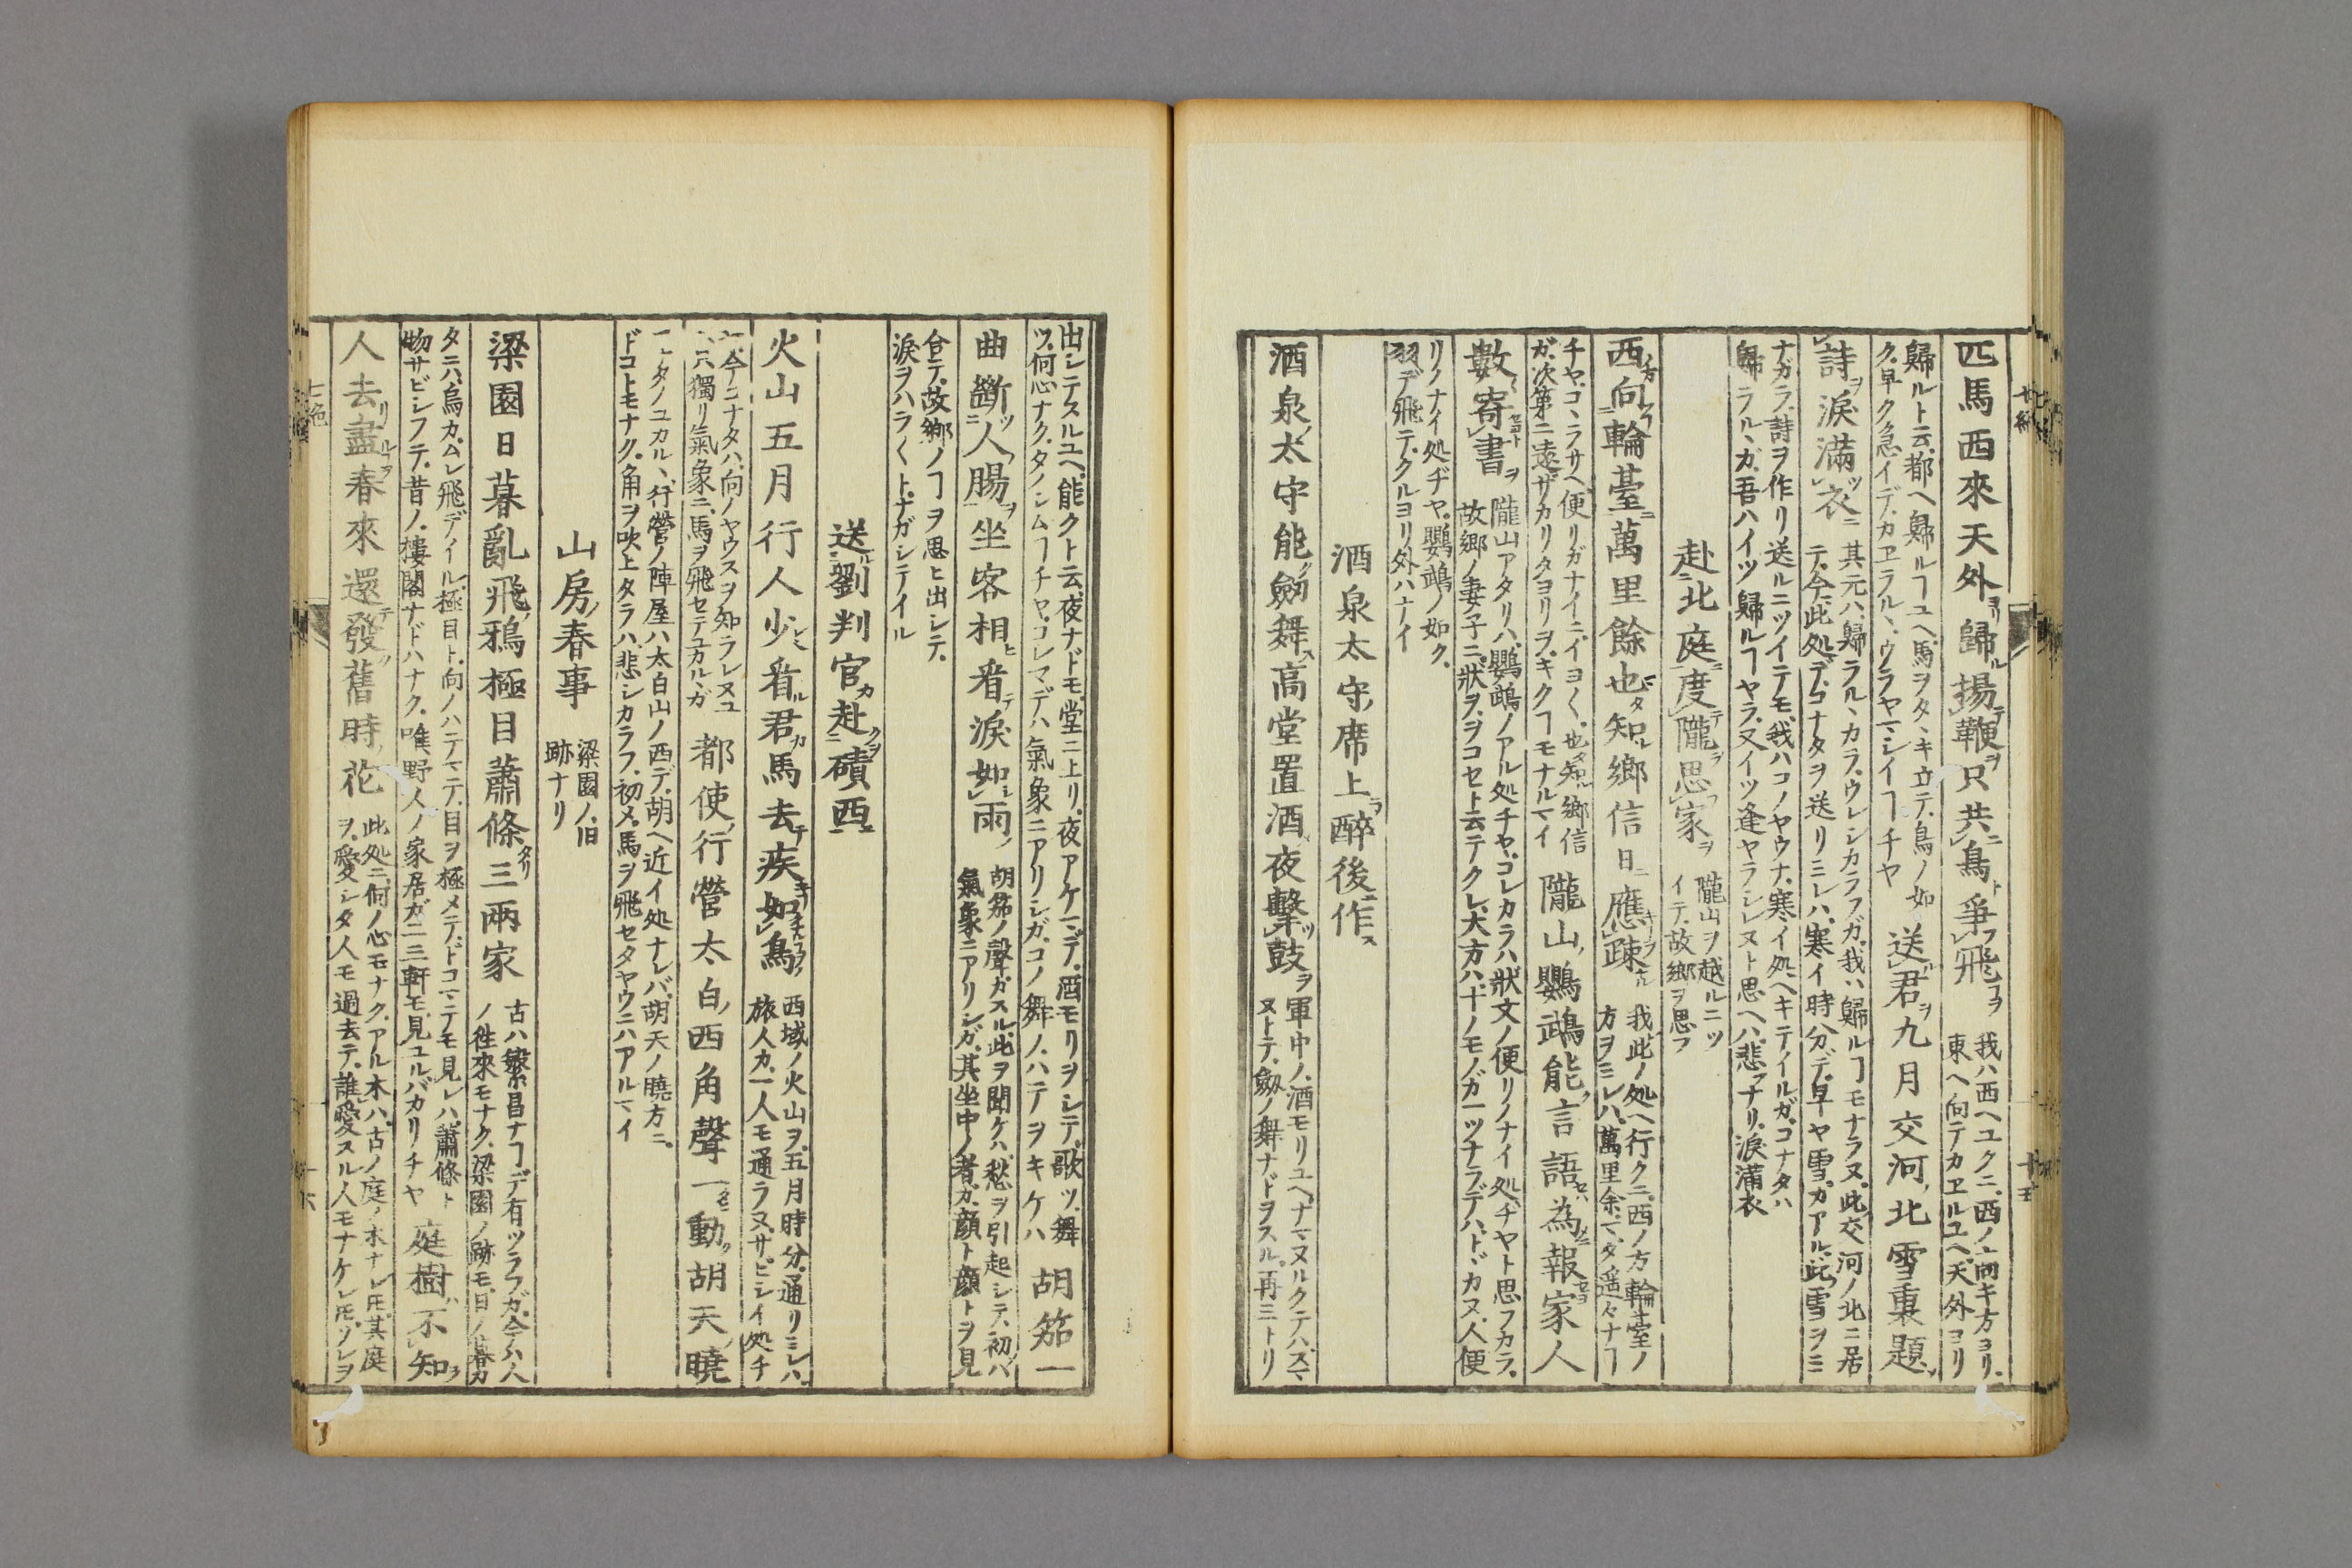 匹馬西來天外歸揚鞭只共鳥爭飛
我ハ西ヘユクニ、西ノ向キ方ヨリ、
東ヘ向テカヱルユヘ、天外ヨリ
歸ルト云、都ヘ歸ルヿユヘ、馬ヲタヽキ立テ、鳥ノ如
ク、早ク急イデ、カヱラルヽ、ウラヤマシイヿチヤ
送君九月交河北雪裏題
詩淚滿衣
其元ハ、歸ラルヽカラ、ウレシカラフガ、我ハ歸ルヿモナラヌ、此交河ノ北ニ居
テ、今此処デ、コナタヲ送リミレハ、寒イ時分デ、早ヤ雪ガアル、此雪ヲミ
ナガラ、詩ヲ作リ送ルニツイテモ、我ハコノヤウナ、寒イ処ヘキテイルガ、コナタハ
歸ラルヽガ、吾ハイツ歸ルヿヤラ、又イツ逢ヤラシレヌト思ヘハ、悲フナリ、淚滿衣
赴北庭度隴思家
隴山ヲ越ルニツ
イテ、故鄉ヲ思フ
西向輪臺萬里餘也知鄉信日應疎
我此ノ処ヘ行クニ、西ノ方輪臺ノ
方ヲミレハ、萬里余マタ遥々ナヿ
チヤ、コヽラサヘ便リガナイニ、イヨ〱、也知鄉信
ガ、次第ニ遠ザカリタヨリヲ、キクヿモナルマイ
隴山鸚鵡能言語為報家人
數寄書
隴山アタリハ、鸚鵡ノアル処チヤ、コレカラハ狀文ノ便リノナイ処チヤト思フカラ、
故鄉ノ妻子ニ、狀ヲヲコセト云テクレ、大方ハ、十ノモノガ一ツナラデハ、トヾカヌ、人便
リクナイ処ヂヤ、鸚鵡ノ如ク、
羽デ飛テクルヨリ外ハナイ
酒泉太守席上醉後作
酒泉太守能劒舞高堂置酒夜擊鼓
軍中ノ、酒モリユヘ、ナマヌルクテハスマ
ヌトテ、劒ノ舞ナドヲスル、再三トリ
出シテスルユヘ、能クト云、夜ナドモ、堂ニ上リ、夜アケマデ、酒モリヲシテ、歌ツ、舞
ツ、何心ナク、タノシムヿチヤ、コレマデハ氣象ニアリシガ、コノ舞ノ、ハテヲキケハ
胡笳一
曲斷人腸坐客相看淚如雨
胡笳ノ聲ガスル、此ヲ聞ケハ、愁ヲ引起シテ、初ハ
氣象ニアリシガ、其坐中ノ者ガ、顔ト顔トヲ見
合テ、故鄉ノヿヲ思ヒ出シテ、
淚ヲハラ〱ト、ナガシテイル
送劉判官赴磧西
火山五月行人少看君馬去疾如鳥
西域ノ火山ヲ、五月時分、通リミレハ、
旅人カ、一人モ通ラヌ、サビシイ処チ
今コナタハ、向ノヤウスヲ知ラレヌユ
只獨リ氣象ニ、馬ヲ飛セテユカルヽガ
都使行營太白西角聲一動胡天曉
タノユカルヽ、行營ノ陣屋ハ太白山ノ西デ、胡ヘ近イ処ナレバ、胡天ノ曉方ニ、
ドコトモナク、角ヲ吹上タラハ、悲シカラフ、初メ、馬ヲ飛セタヤウニハアルマイ
山房春事
梁園ノ旧
跡ナリ
梁園日暮亂飛鴉極目蕭條三兩家
古ハ繁昌ナヿデ有ツラフガ、今ハ人
ノ徃來モナク、梁園ノ跡モ、日ノ暮カ
タニハ、烏カムレ飛デイル、極目ト、向ノハテマテ、目ヲ極メテ、ドコマテモ見レハ、蕭條ト
物サビシフテ、昔ノ、樓閣ナドハナク、唯野人ノ家居ガ二三軒モ見ユルバカリチヤ
庭樹不知
人去盡春來還發舊時花
此処ニ、何ノ心モナク、アル木ハ、古ノ庭ノ木ナレ𪜈、其庭
ヲ、愛シタ人モ過去テ、誰愛スル人モナケレ𪜈、ソレヲ
七絶